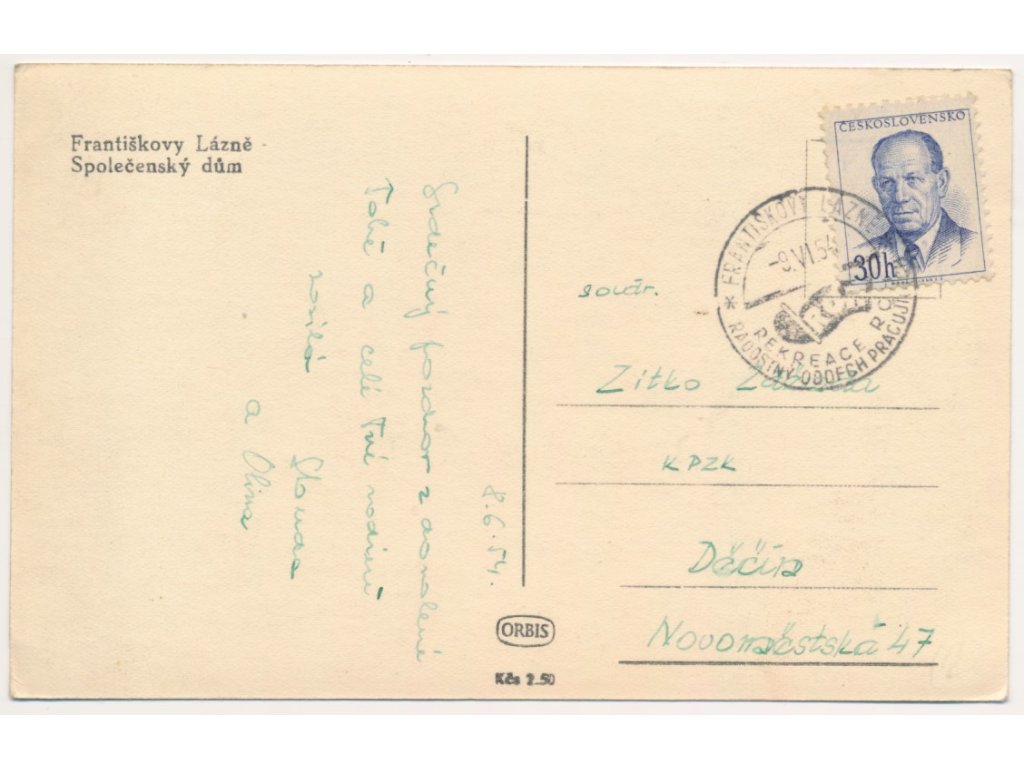 Františkovy Lázně
Společenský dům
8.6.54.
Srdečný pozdrav z dovolené
Tobě a celé Tvé rodině
posílá
a Olina
ČESKOSLOVENSKO
30h
* FRANTIŠKOVY LÁZNĚ
-9.VI.54
REKREACE ROH
RADOSTNÝ ODDECH PRACUJÍ
soudr.
Zitko
KPZK
Děčín
Novoměstská 47
ORBIS
Kčs 2.50